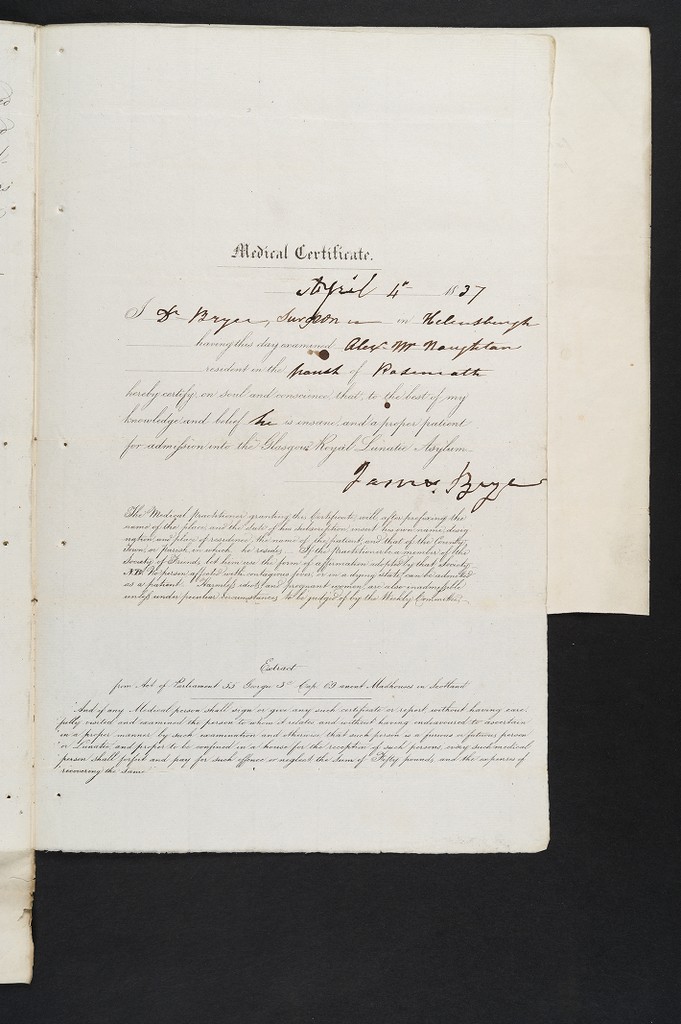 Medical Certificate.
April 4th 1837
I Dr Bryce, Surgeon in Helensburgh
having this day examined Alexr Mc Naughtan
resident in the parish of Roseneath
hereby certify, on soul and conscience, that, to the best of my
knowledge and belief he is insane, and a proper patient
for admission into the Glasgow Royal Lunatic Asylum.
James Bryce
The Medical practitioner granting this Certificate, will, after prefixing the
name of the place, and the date of his subscription, insert his own name, desig
nation, and place of residence, the name of the patient, and that of the Country,
Town, or parish, in which he resides. If the practitioner be a member of the
Society of Friends, let him use the form of affirmation adopted by that Society.
NB. No person affected with contagious fever, or in a dying state, can be admitted
as a patient. Harmless idiots, and pregnant women, are also inadmissible,
unless under peculiar circumstances, to be judged of by the Weekly Committee.
Extract
from Act of Parliament 55 George 3d Cap. 69 anent Madhouses in Scotland
"And if any Medical person shall sign or give any such certificate or report without having care-
"fully visited and examined the person to whom it relates, and without having endeavoured to ascertain
"in a proper manner by such examination and otherwise that such person is a furious or fatuous person
"or Lunatic, and proper to be confined in a house for the reception of such persons, every such medical
"person shall forfeit and pay for such offence or neglect the Sum of Fifty pounds, and the expenses of
"recovering the same"